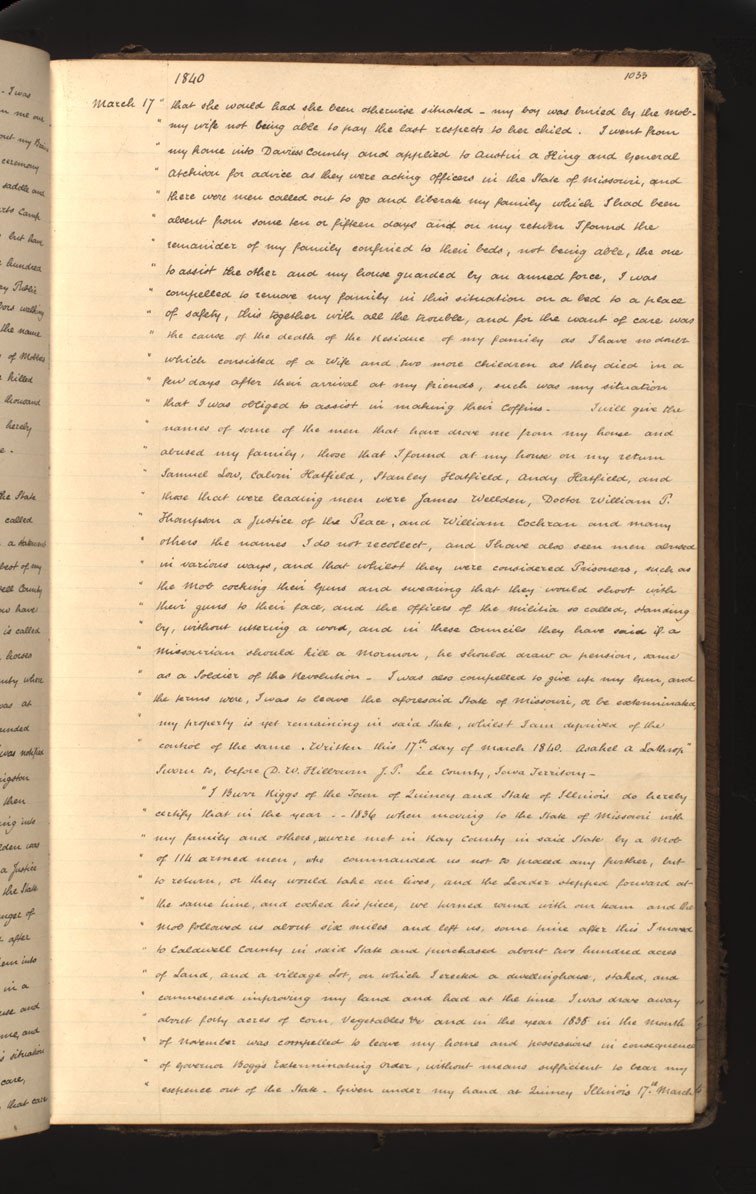 - I was
n me our
out my
ceremony
saddle and
but han
hundred
ey Public
bors walking
the name
of Mobbers
killed
thousand
hereby
he State
called
a statement
best of my
ell County
ow have
is called
horses
unty where
was at
unded
was notified
ingston
then
ing into
lden was
a Justice
the State
nger of
after
em into
in a
use and
me, and
s situation
care,
that care
1840
1033
March 17 " that she would had she been otherwise situated - my boy was buried by the Mob -
" my wife not being able to pay the last respects to her child. I went from
" my home into Daviess County and applied to Austin a King and General
" Atchison for advice as they were acting officers in the State of Missouri, and
" there were men called out to go and liberate my family which I had been
" absent from some ten or fifteen days and on my return I found the
" remainder of my family confined to their beds, not being able, the one
" to assist the other and my house guarded by an armed force, I was
" compelled to remove my family in this situation on a bed to a place
" of safety, this together with all the trouble, and for the want of care was
" the cause of the death of the Residue of my family as I have no doubt
" which consisted of a Wife and two more children as they died in a
" few days after their arrival at my friends, such was my situation
" that I was obliged to assist in making their Coffins - I will give the
" names of some of the men that have drove me from my house and
" abused my family, those that I found at my house on my return
" Samuel Low, Calvin Hatfield, Stanley Hatfield, Andy Hatfield, and
" those that were leading men were James Wellden, Doctor William P.
" Thompson a Justice of the Peace, and William Cochran and many
" others the names I do not recollect, and I have also seen men abused
" in various ways, and that whilst they were considered Prisoners, such as
" the Mob cocking their Guns and swearing that they would shoot with
" their guns to their face, and the officers of the militia so called, standing
" by, without uttering a word, and in these Councils they have said if a
" Missourian should kill a Mormon, he should draw a pension, same
" as a Soldier of the Revolution - I was also compelled to give up my Gun, and
" the terms were, I was to leave the aforesaid State of Missouri, or be exterminated
" my property is yet remaining in said State, whilst I am deprived of the
" control of the same. Written this 17th day of March 1840. Asahel A Lathrop"
Sworn to, before D. W. Kilbourn J. P. Lee County, Iowa Territory -
"I Burr Riggs of the Town of Quincy and State of Illinois do hereby
" certify that in the year - - 1836 when moving to the State of Missouri with
" my family and others, were met in Ray County in said State by a Mob
" of 114 armed men, who commanded us not to proceed any further, but
" to return, or they would take our lives, and the Leader stepped forward at
" the same time, and cocked his piece, we turned round with our team and the
" Mob followed us about six miles and left us, some time after this I moved
" to Caldwell County in said State and purchased about two hundred acres
" of Land, and a village Lot, on which I erected a dwellinghouse, staked, and
" commenced improving my land and had at the time I was drove away
" about forty acres of Corn, Vegetables &c and in the year 1838 in the month
" of November was compelled to leave my home and possessions in consequence
" of Governor Bogg's Exterminating order, without means sufficient to bear my
" expence out of the State. Given under my hand at Quincy Illinois 17th March